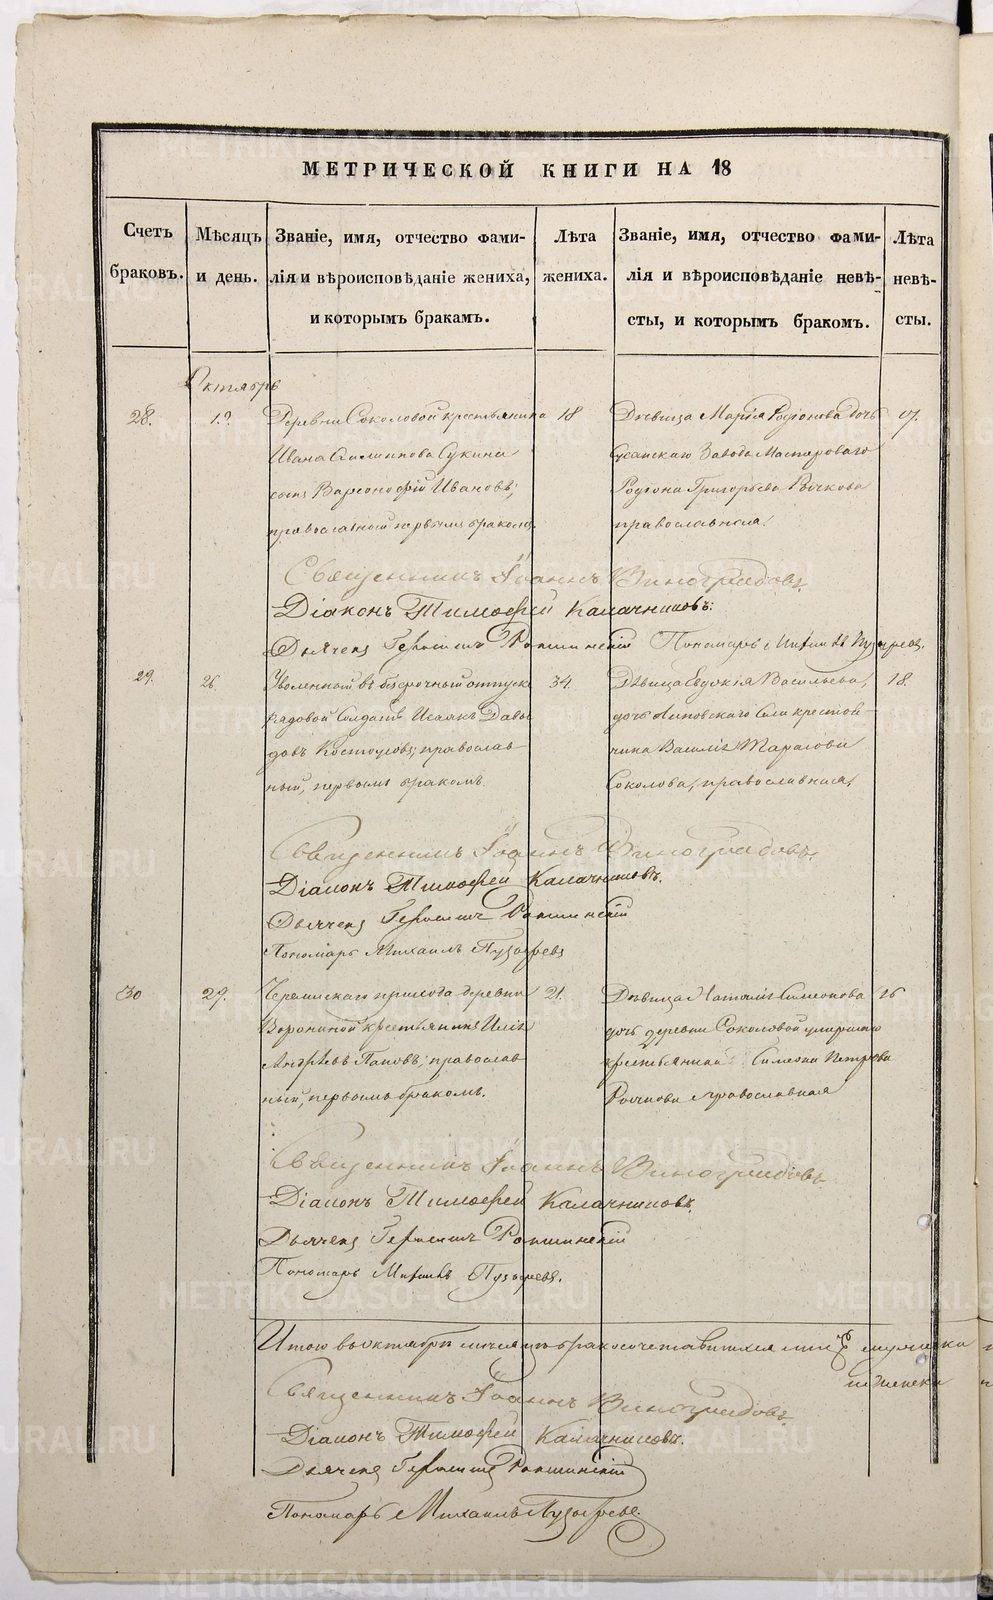 МЕТРИЧЕСКОЙ КНИГИ НА 18
Счетъ браковъ.
Мѣсяцъ и день.
Званіе, имя, отчество фами-
лія и вѣроисповѣданіе жениха,
и которымъ бракамъ.
Лѣта жениха.
Званіе, имя, отчество фами-
лія и вѣроисповѣданіе невѣ-
сты, и которымъ бракомъ.
Лѣта невѣ-
сты.
Октябрь
28.
Деревни Соколовой крестьянина
Ивана Сукина
сынъ Варѳоноѳій Ивановъ,
православный первымъ бракомъ.
18
Дѣвица Марія Родіонова дочь
Завода Мастероваго
Родіона Григорьева Рычкова
православная.
17.
Священникъ Іоаннъ Виноградовъ.
Діаконъ Тимофей Калачниковъ.
Дьячекъ Герасимъ Пономарь Михаилъ Пузыревъ.
29.
26.
Уволенный въ безсрочный отпускъ
рядовой Солдатъ Исаакъ Давы
довъ Костоусовъ, православ
ный, первымъ бракомъ.
34.
Дѣвица Евдокія Васильева,
дочь Липовскаго Села крестья-
нина Василія Тарасова
Соколова, православная,
18.
Священникъ Іоаннъ Виноградовъ.
Діаконъ Тимофей Калачниковъ.
Дьячекъ Герасимъ
Пономарь Михаилъ Пузыревъ
30
29.
Черемисскаго прихода деревни
Ворониной крестьянинъ Илія
Андреевъ Поповъ, православ
ный, первымъ бракомъ.
21.
Дѣвица Наталія Симеонова
дочь деревни Соколовой умершаго
крестьянина Симеона Петрова
Рычкова православная
16
Священникъ Іоаннъ Виноградовъ.
Діаконъ Тимофей Калачниковъ.
Дьячекъ Герасимъ
Пономарь Михаилъ Пузыревъ.
Итого въ октябрѣ мѣсяцѣ бракосочетавшихся мужеска
и женска
Священникъ Іоаннъ Виноградовъ
Діаконъ Тимофей Калачниковъ.
Дьячекъ Герасимъ
Пономарь Михаилъ Пузыревъ.
METRIKI.GASO-URAL.RU